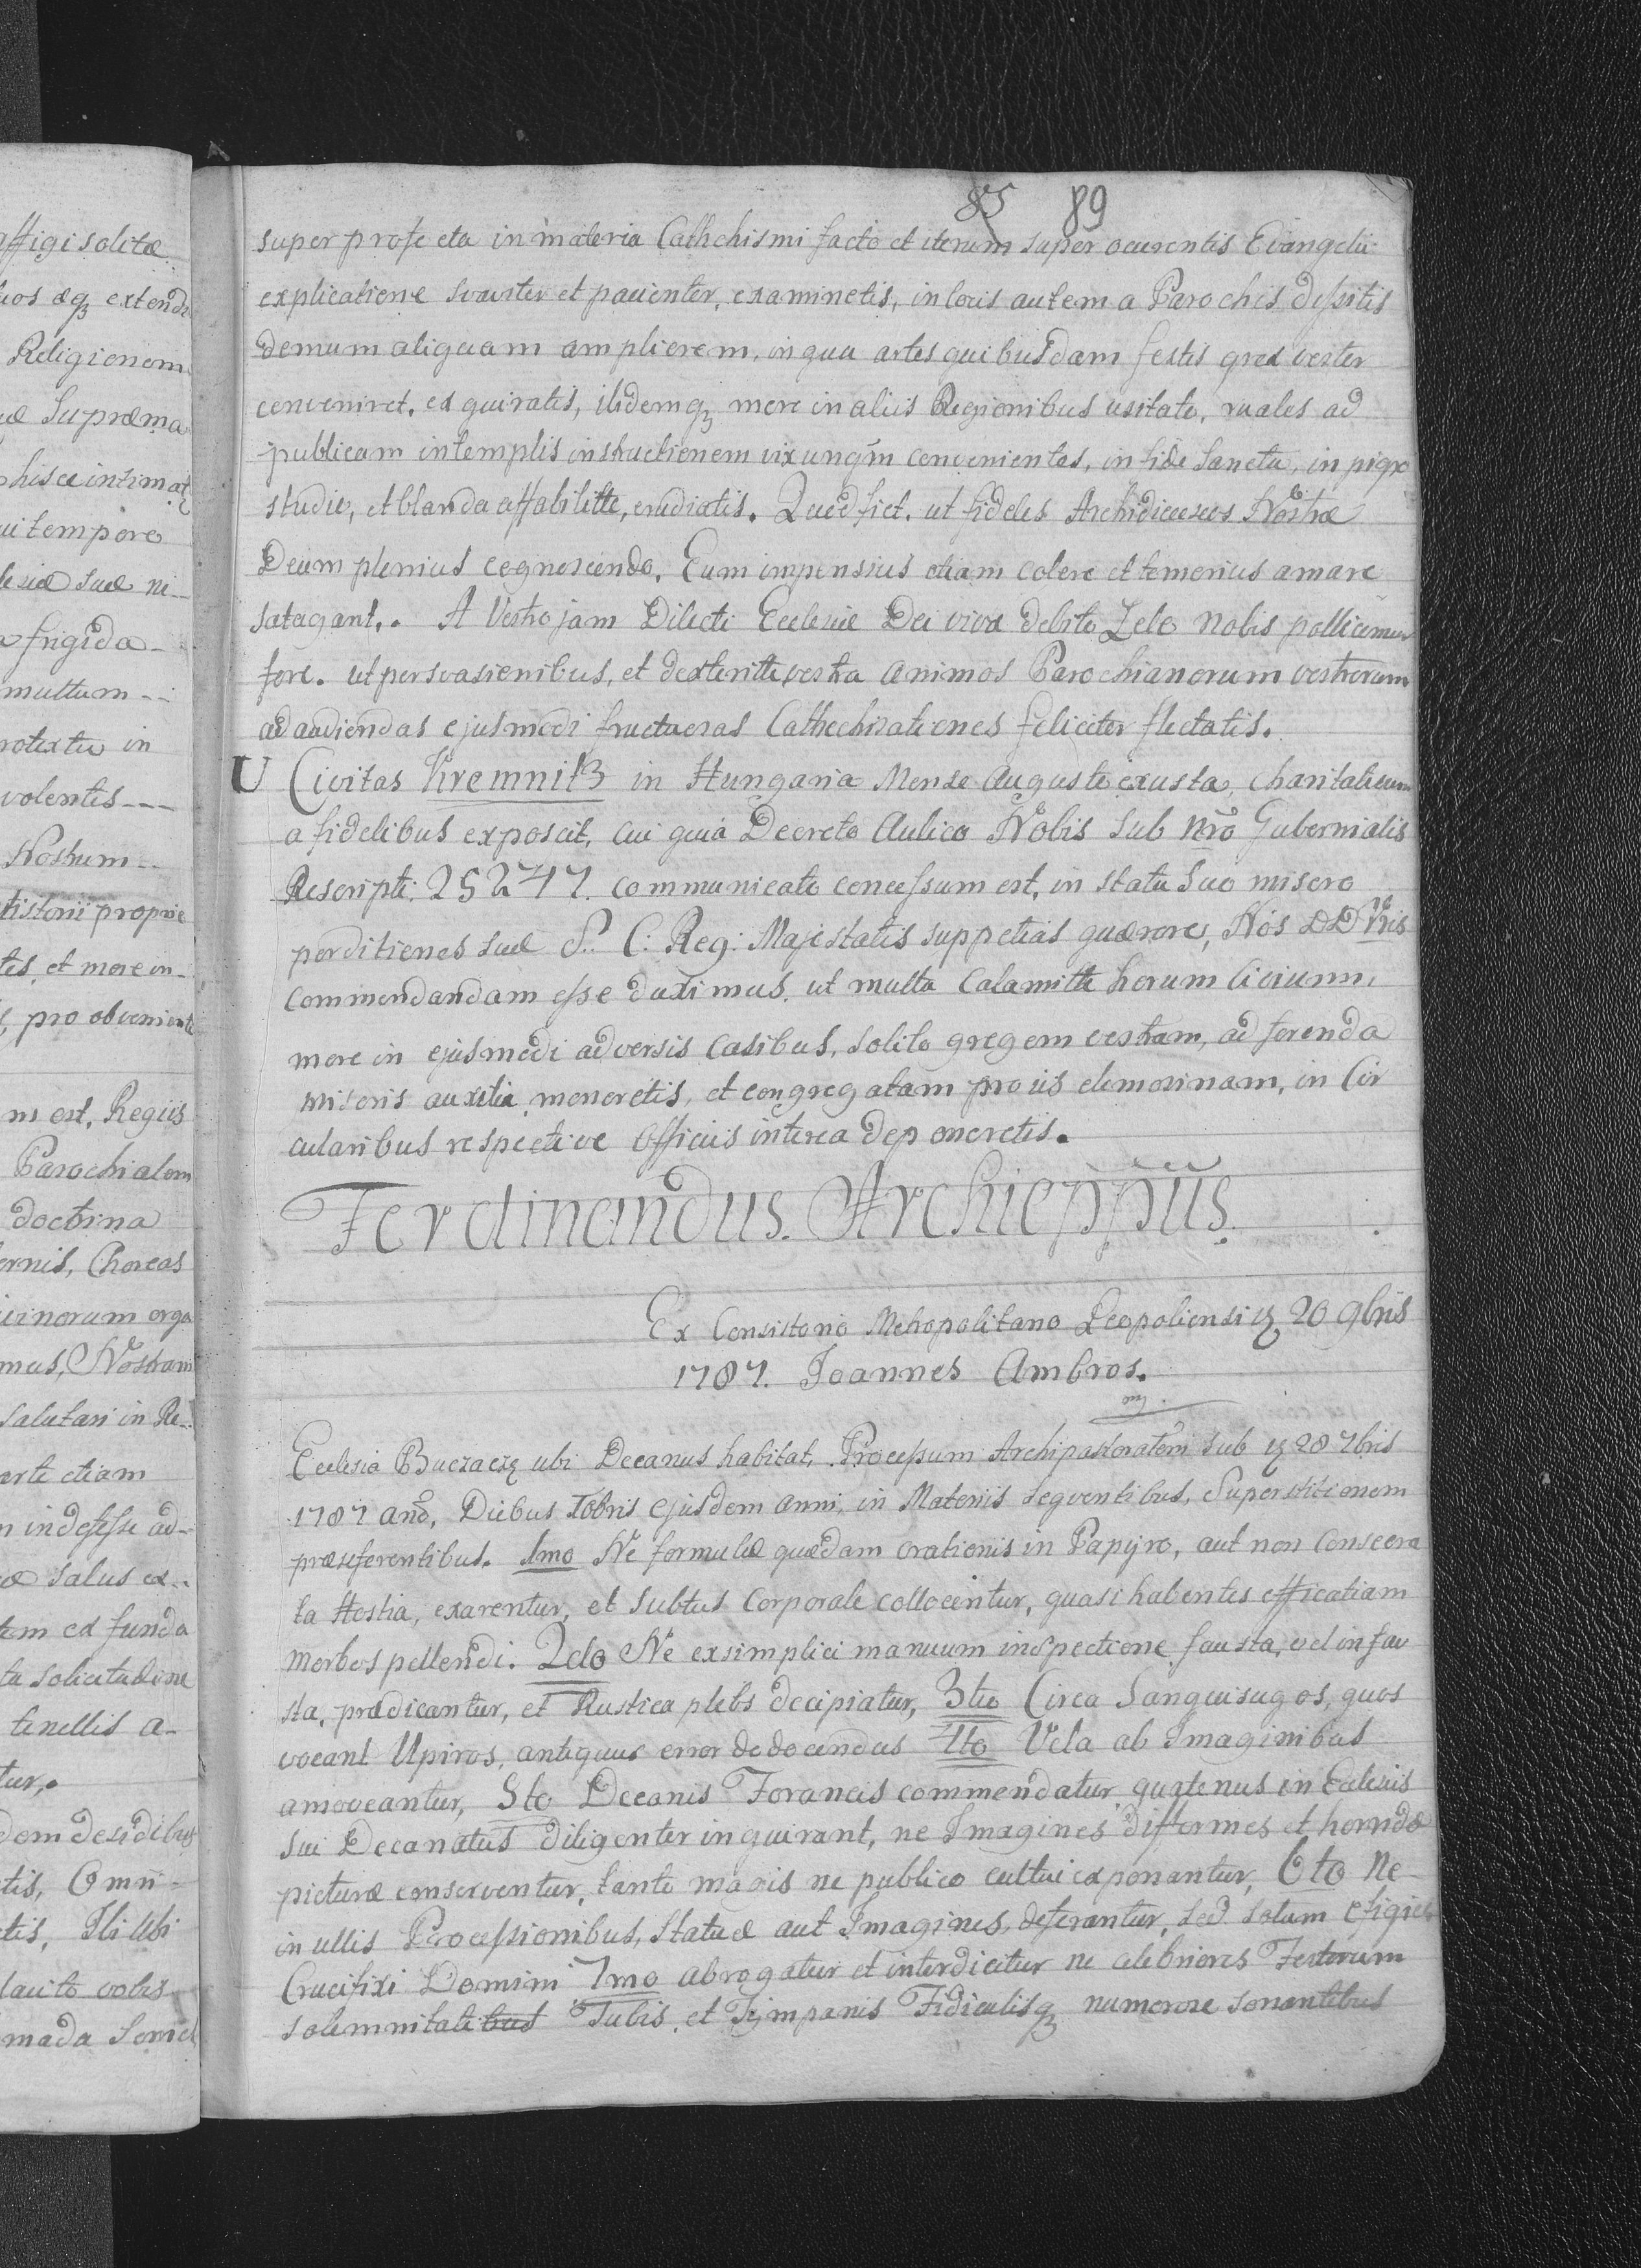 85 89
super profecta in materia Cathchismi facto et iterum super ocurentis Evangelii
explicatione svaviter et pacienter, examinetis, in locis autem a Parochis dissitis
demum aliquam ampliorem, in qua artes quibusdam festis grex vester
conveniret, exquiratis, ibidemq more in aliis Regionibus usitato, rudes ad
publicam in templis instructionem vix unqm convenientes, in fide Sancta, in pigro
studio, et blanda affabilitte, erudiatis. Quod fiet, ut fideles Archidiaeceseos Nostrae
Deum plenius cognoscendo, Eum impensius etiam colere et temerius amare
satagant. A Vestro jam Dilecti Ecclesiae Dei viva debito Zelo Nobis pollicemur
fore. ut persvasionibus, et dexteritte vestra animos Parochianorum vestrorum
ad audiendas ejusmodi fructuosas Cathechisationes feliciter flectatis.
U Civitas Kremnitz in Hungaria Mense Augusto exusta, charitativum
a fidelibus exposcit, cui quia Decreto Aulico Nobis sub Nro Gubernialis
Rescripti 25247. communicato concessum est, in statu suo misero
perditiones suae S. C. Reg. Majestatis suppetias quaerere, Nos DD Vris
commendandam esse duximus, ut multa calamitte horum Civium,
more in ejusmodi adversis casibus, solito gregem vestram, ad ferenda
miseris auxilia moneretis, et congregatam pro iis elemosinam, in Cir
cularibus respective Officiis interea deponeretis.
Ferdinandus. Archieppus.
Ex Consistorio Metropolitano Leopoliensi 20 9bris
1787. Joannes Ambros.
mp
Ecclesia Buczacz ubi Decanus habitat, Processum Archipastoratem sub 28 7bris
1787 ano, Diebus Xbris ejusdem anni, in Materiis sequentibus, Superstitionem
praeseferentibus. 1mo Ne formulae quaedam orationis in Papyro, aut non Consecra
ta Hostia, exarentur, et subtus Corporale collocentur, quasi habentes efficatiam
morbos pellendi. 2do Ne ex simplici manuum inspectione fausta, vel infau
sta, praedicantur, et Rustica plebs decipiatur, 3tio Circa Sanguisugos, quos
vocant Upiros, antiquus error dedocendus 4to Vela ab Imaginibus
amoveantur, 5to Decanis Foraneis commendatur, quatenus in Ecclesiis
sui Decanatus diligenter inquirant, ne Imagines difformes et horridae
picturae conserventur, tanto magis ne publico cultui exponantur, 6to Ne
in ullis Processionibus, Statuae aut Imagines, deferantur, sed solum efigies
Crucifixi Domini 7mo abrogatur et interdicitur ne celebriores Festorum
solemnitatibus Tubis, et Tympanis Fidiculisq numerose sonantibus